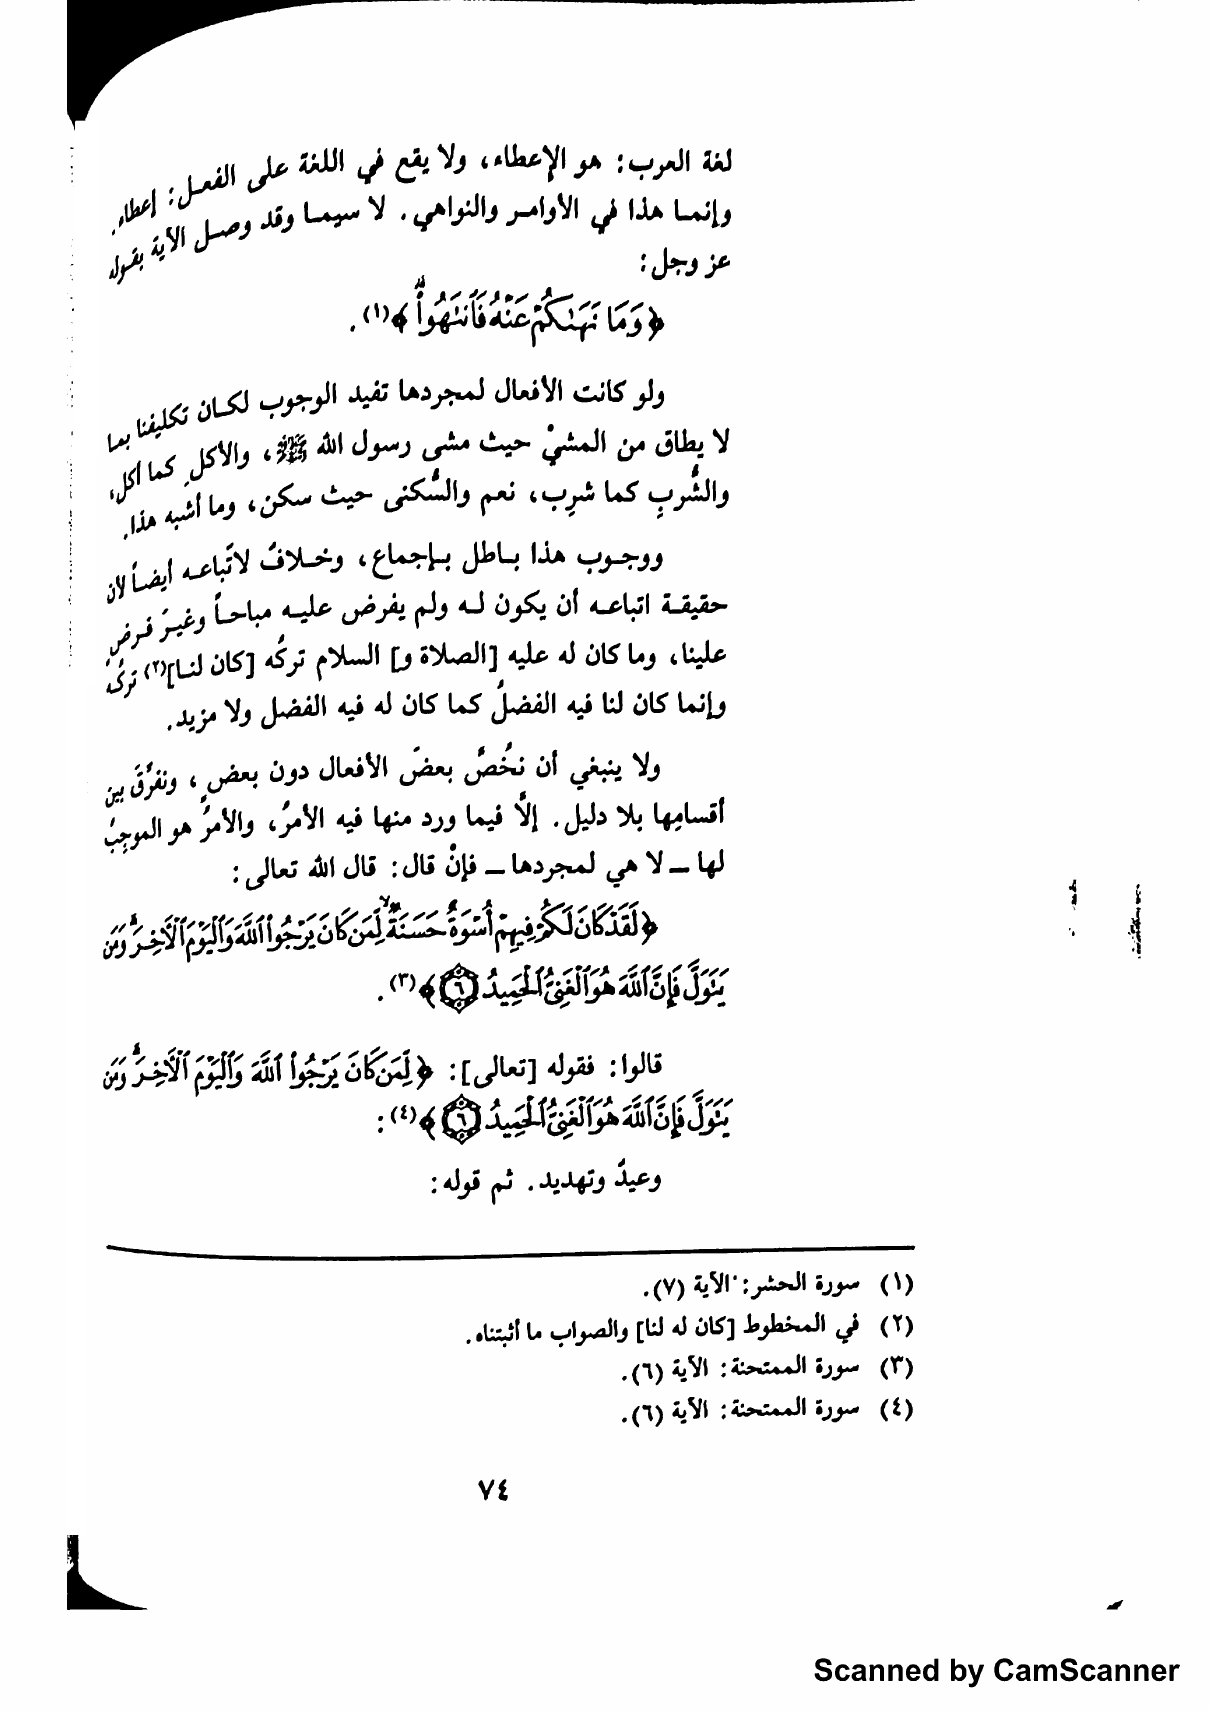 لغة العرب: هو الإعطاء، ولا يقع في اللغة على الفعل: إعطاء.
وإنما هذا في الأوامر والنواهي. لا سيما وقد وصل الآية بقوله
عز وجل:
﴿وَمَا نَهَىٰكُمْ عَنْهُ فَٱنتَهُوا۟ۚ﴾(١).
ولو كانت الأفعال لمجردها تفيد الوجوب لكان تكليفنا بما
لا يطاق من المشيْ حيث مشى رسول الله ﷺ، والأكلِ كما أكل،
والشُربِ كما شرِب، نعم والسُكنى حيث سكن، وما أشبه هذا.
ووجوب هذا باطل بإجماع، وخلافُ لاتّباعه أيضاً لأن
حقيقة اتباعه أن يكون له ولم يفرض عليه مباحاً وغيرَ فرضٍ
علينا، وما كان له عليه [الصلاة و] السلام تركُه [كان لنا](٢) تركُه
وإنما كان لنا فيه الفضلُ كما كان له فيه الفضل ولا مزيد.
ولا ينبغي أن نخُصَّ بعضَ الأفعال دون بعضٍ، ونفرِّقَ بين
أقسامِها بلا دليل. إلَّا فيما ورد منها فيه الأمرُ، والأمرُ هو الموجِبُ
لها – لا هي لمجردها – فإنْ قال: قال الله تعالى:
﴿لَقَدْ كَانَ لَكُمْ فِيهِمْ أُسْوَةٌ حَسَنَةٌ لِّمَن كَانَ يَرْجُوا۟ ٱللَّهَ وَٱلْيَوْمَ ٱلْءَاخِرَۚ وَمَن
يَتَوَلَّ فَإِنَّ ٱللَّهَ هُوَ ٱلْغَنِىُّ ٱلْحَمِيدُ ٦﴾(٣).
قالوا: فقوله [تعالى]: ﴿لِّمَن كَانَ يَرْجُوا۟ ٱللَّهَ وَٱلْيَوْمَ ٱلْءَاخِرَۚ وَمَن
يَتَوَلَّ فَإِنَّ ٱللَّهَ هُوَ ٱلْغَنِىُّ ٱلْحَمِيدُ ٦﴾(٤):
وعيدٌ وتهديد. ثم قوله:
(١) سورة الحشر: الآية (٧).
(٢) في المخطوط [كان له لنا] والصواب ما أثبتناه.
(٣) سورة الممتحنة: الآية (٦).
(٤) سورة الممتحنة: الآية (٦).
٧٤
Scanned by CamScanner